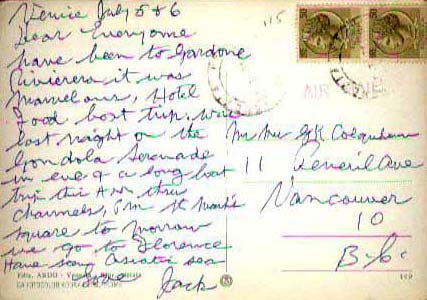 Venice July 5 & 6
Dear Everyone
have been to Gardone
Rivierera it was
marvelous, Hotel
Food boat trip. was
last night on the
Gondola Serenade
in eve & a long boat
trip this A.M. thru
channels, P.m St Mark's
square to morrow
we go to Florence
Have sang Asiatic sea
Jack
115
AIR
Mr Mrs G K Colquhoun
11 Peneril Ave
Vancouver
10
B.C.
Ediz. ARDO